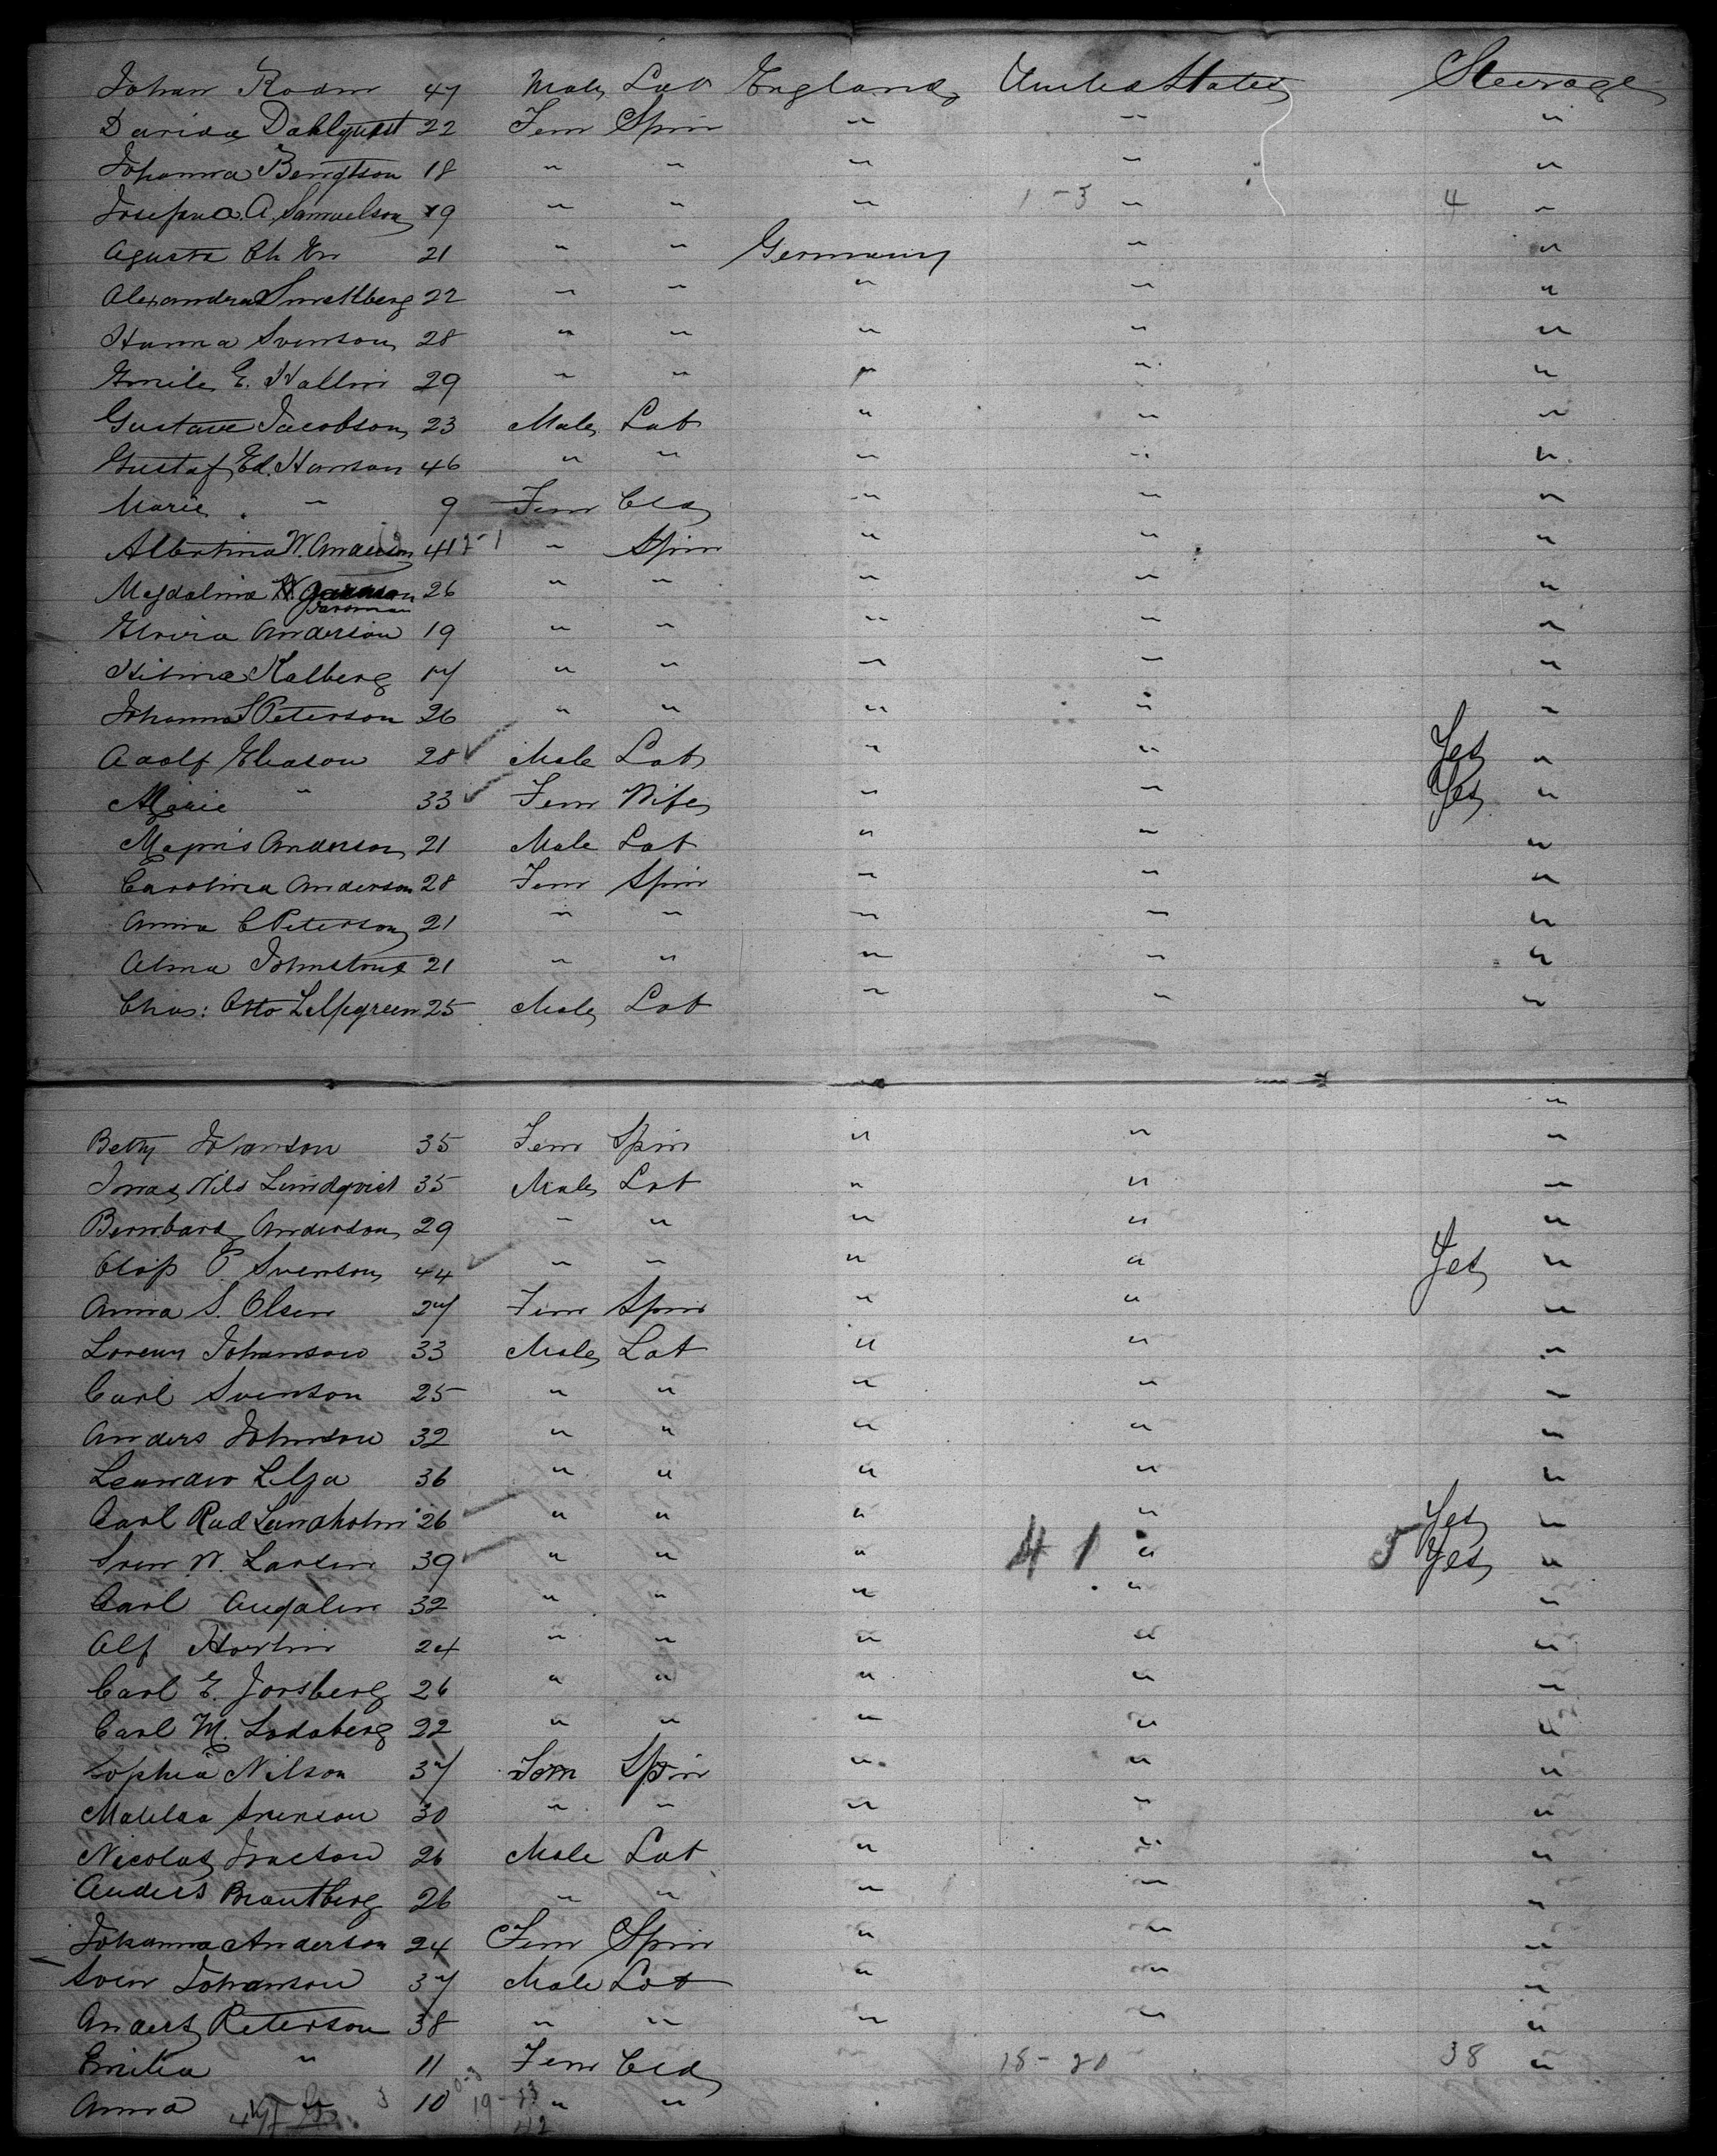 Johan Rodin 47 Male Lab England United States Steerage
Davida Dahlquist 22 Fem Spin " " "
Johanna Bengtson 18 " " " " "
Josefina A. Samuelson 19 " " " 1-3 " 4 "
Agusta 21 " " Germany " "
Alexandra 22 " " " " "
Hanna Svenson 28 " " " " "
Emile E. Wallin 29 " " " " "
Gustave Jacobson 23 Male Lab " " "
Gustaf Ed. Hanson 46 " " " " "
Marie " 9 Fem Cld " " "
Albertina W. Anderson 41 2-1 " Spin " " "
Magdalina W. 26 " " " " "
Elvira Anderson 19 " " " " "
Hilma Kalberg 17 " " " " "
Johanna S Peterson 26 " " " " "
Adolf Eliason 28 ✓ Male Lab " " Yes "
Marie " 33 ✓ Fem Wife " " Yes "
Magnis Anderson 21 Male Lab " " "
Carolina Anderson 28 Fem Spin " " "
Anna C Peterson 21 " " " " "
Alma Johnstone 21 " " " " "
Chas: Otto Liljegreen 25 Male Lab " " "
"
Betty Johanson 35 Fem Spin " " "
Jonas Nils Lundqvist 35 Male Lab " " "
Bernhard Anderson 29 " " " " "
Olof P. Svenson 44 ✓ " " " " Yes "
Anna S. Olsen 27 Fem Spin " " "
Lorenz Johanson 33 Male Lab " " "
Carl Svenson 25 " " " " "
Anders Johnson 32 " " " " "
Leander Lilja 36 " " " " "
Carl Rud Lundholm 26 ✓ " " " " Yes "
Sven W. Larsen 39 ✓ " " " 41 " 5 Yes "
Carl 32 " " " " "
Alf 24 " " " " "
Carl E. Forsberg 26 " " " " "
Carl M. 22 " " " " "
Sophia Nilson 37 Fem Spin " " "
Matilda Svenson 30 " " " " "
Nicolas 26 Male Lab " " "
Anders Brantberg 26 " " " " "
Johanna Anderson 24 Fem Spin " " "
Sven Johanson 37 Male Lab " " "
Anders Peterson 38 " " " " "
Emilia " 11 Fem Cld " 18-20 38 "
Anna " 3 10 19-23 " "
42